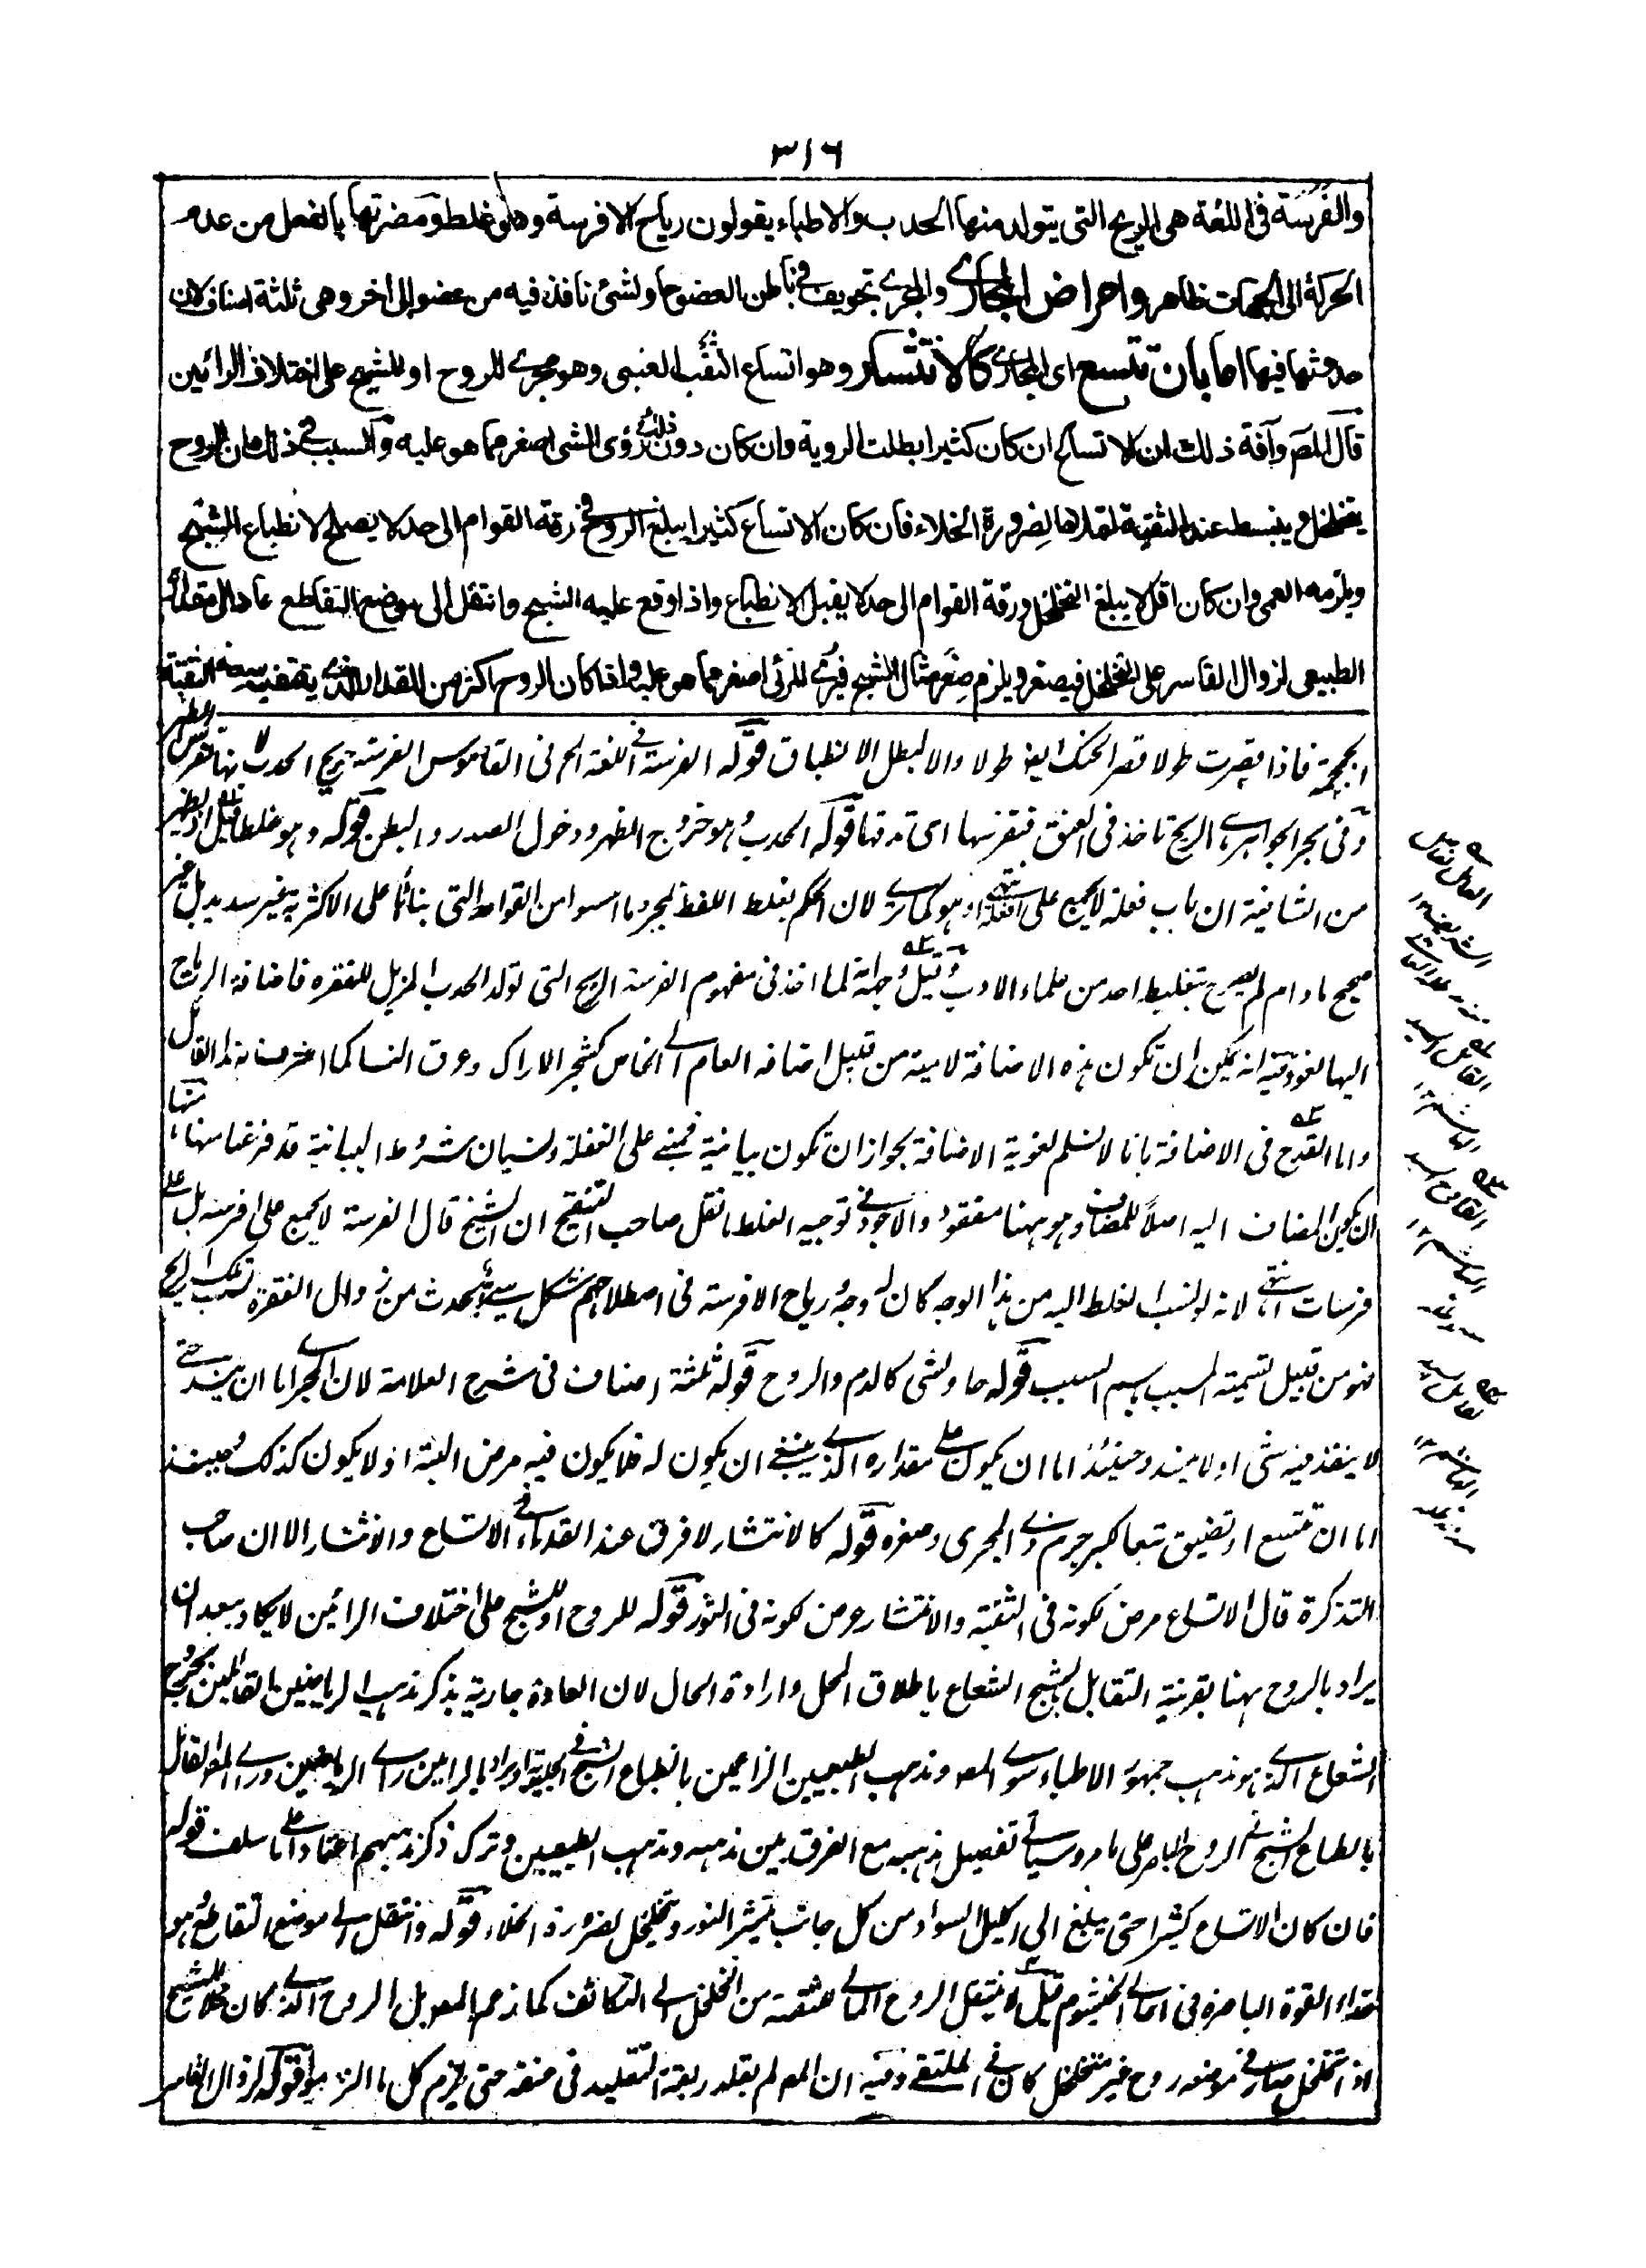 ٣١٦
والفَرْسَة فی اللغة هی الریح التی یتولد منها الحدب والاطباء یقولون ریاح الافرسة وهو غلط ومضرتها بالفعل من عدم
الحرکة الی الجهات ظاهر وامراض المجاری والمجری تجویف فی باطن العضو حاو لشئ نافذ فیه من عضو الی اخر وهی ثلثة اصناف لان
حدوثها فیها اما بان تتسع ای المجاری کالانتشار وهو اتساع الثقب العنبی وهو مجری للروح او للشبح علی اختلاف الرائین
قال المصَ وآفة ذلک ان الاتساع ان کان کثیرا ابطلت الرویة وان کان دون ذلک رؤی الشی اصغر مما هو علیه والسبب فی ذلک ان الروح
یتخلخل وینبسط عند الثقبة لتملاها لضرورة الخلاء فان کان الاتساع کثیرا یبلغ الروح فی رقة القوام الی حد لا یصلح لانطباع الشبح
ویلزمه العمی وان کان اقل لا یبلغ التخلخل ورقة القوام الی حد لا یقبل الانطباع واذا وقع علیه الشبح وانتقل الی موضع التقاطع عاد الی مقداره
الطبیعی لزوال القاسر علی التخلخل فیصغر ویلزم صغر مثال الشبح فیری المرئی اصغر مما هو علیه واذا کان الروح اکثر من المقدار الذی یقتضیه سعة الثقبة
الجمجمة فاذا قصرت طولا قصر الحنک ایضا طولا والا لبطل الانطباق قولَه الفرسة فی اللغة الخ فی القاموس الفرسة ریح الحدب لانها تفرس الظهر
وفی بحر الجواهر هی الریح تاخذ فی العنق فتفرسها ای تدقها قولَه الحدب وهو خروج الظهر ودخول الصدر والبطن قولَه وهو غلط قیل
من الشافیة ان باب فعلة لا یجمع علی افعلة انتهی وهو کما تری لان الحکم بغلط اللفظ بمجرد ما اسسوا من القواعد التی بناؤها علی الاکثریة غیر سدید بل غیر
صحیح مادام لم یصرح بتغلیط احد من علماء الادب وقیل وجهه انه لما اخذ فی مفهوم الفرسة الریح التی تولد الحدب المزیل للفقره فاضافة الریاح
الیها لغو وفیه انه یمکن ان تکون هذه الاضافة لامیة من قبیل اضافه العام الی الخاص کشجر الاراک وعرق النسا کما اعترف به هذا القائل
واما القدح فی الاضافة بانا لا نسلم لغویة الاضافة بجواز ان تکون بیانیة فمبنی علی الغفلة ونسیان شروط البیانیة قد فرغنا منها منها
ان یکون المضاف الیه اصلاً للمضاف وهو ههنا مفقود والاجود فی توجیه الغلط ما نقل صاحب التنقیح ان الشیخ قال الفرسة لا یجمع علی افرسه بل علی
فرسات انتهی لانه لو نسب الغلط الیه من هذا الوجه کان له وجه ریاح الافرسة فی اصطلاحهم تحدث من زوال الفقرة بسبب تلک الریح
فهو من قبیل تسمیته المسبب باسم السبب قولَه حاو لشی کالدم والروح قولَه ثلثة اصناف فی شرح العلامة لان المجری اما ان ینسد حتی
لا ینفذ فیه شی اولا ینسد وحینئذ اما ان یکون علی مقداره الذی ینبغی ان یکون له فلا یکون فیه مرض البتة او لا یکون کذلک وحینئذ
اما ان تتسع او تضیق تبعا کبر جرم ذی المجری وصغره قولَه کالانتشار لا فرق عند القدماء فی الاتساع والانتشار الا ان صاحب
التذکرة قال الاتساع مرض لکونه فی الثقبة والانتشار عرض لکونه فی النور قولَه للروح او للشبح علی اختلاف الرائین لا یکاد یبعد ان
یراد بالروح ههنا بقرنیة التقابل للشبح الشعاع باطلاق المحل وارادة الحال لان العادة جاریة بذکر مذهب الریاضیین القائلین بخروج
الشعاع الذی هو مذهب جمهور الاطباء سوی المصه ومذهب الطبیعیین الزاعمین بانطباع الشبح فی الجلیدیة او یراد بالرایین رای الریاضیین ورای المصه القائل
بانطباع الشبح فی الروح الباصر علی ما مر وسیاتی تفصیل مذهبه مع الفرق بین مذهبه ومذهب الطبیعیین وترک ذکر مذهبهم اعتمادا علی ما سلف قوله
فان کان الاتساع کثیرا حتی یبلغ الی اکلیل السواد من کل جانب ینتشر النور ویتخلخل لضرورة الخلاء قولَه وانتقل الی موضع التقاطع وهو
مقدار القوة الباصرة فی اعالی الخیشوم قیل لا ینتقل الروح المالی للثقبة من التخلخل الی التکاثف کما زعم المصه بل الروح الذی کان حاملا للشبح
اذا تخلخل صار فی موضعه روح غیر متخلخل کان فی الملتقی وفیه ان المصه لم یقلد ربقة التقلید فی عنقه حتی یلزم کل ما الزموا قولَه لزوال القاسر